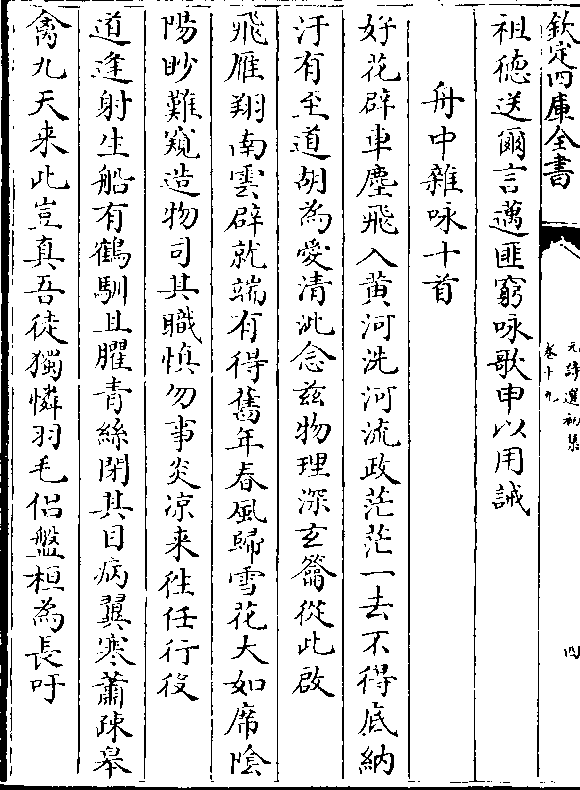 欽定四庫全書
元詩選初集
卷十九
四
祖德送爾言邁匪窮咏歌申以用誡
舟中雜咏十首
好花辟車塵飛入黄河洗河流政茫茫一去不得底納
汙有至道胡為愛清泚念兹物理深玄籥從此啟
飛雁翔南雲辟就端有得舊年春風歸雪花大如席陰
陽眇難窺造物司其職慎勿事炎凉来徃任行役
道逢射生船有鶴馴且臞青絲閉其目病翼寒蕭疎皋
禽九天来此豈真吾徒獨憐羽毛侣盤桓為長吁